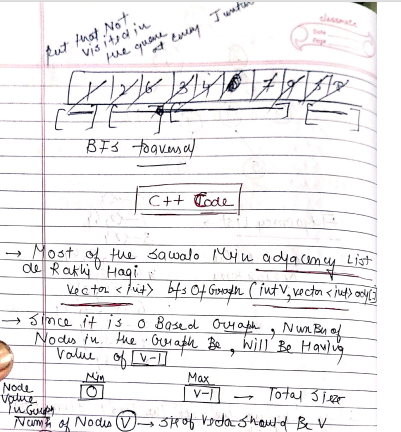 Put that Not
visited in
the queue at every Junction
classmate
Date
Page
1 2 6 3 4 8 7 9 5
BFS traversal
C++ Code
→ Most of the sawalo Mein adjacency List
de Rakhi Hagi
vector <int> bfs Of Graph (int V, vector <int> adj[]
→ Since it is 0 Based Graph, Number of
Nodes in the Graph Be, Will Be Having
Value of V-1
Min Max
Node 0 V-1 → Total Size
Value
In Graph
Num of Nodes V → Size of Should Be V